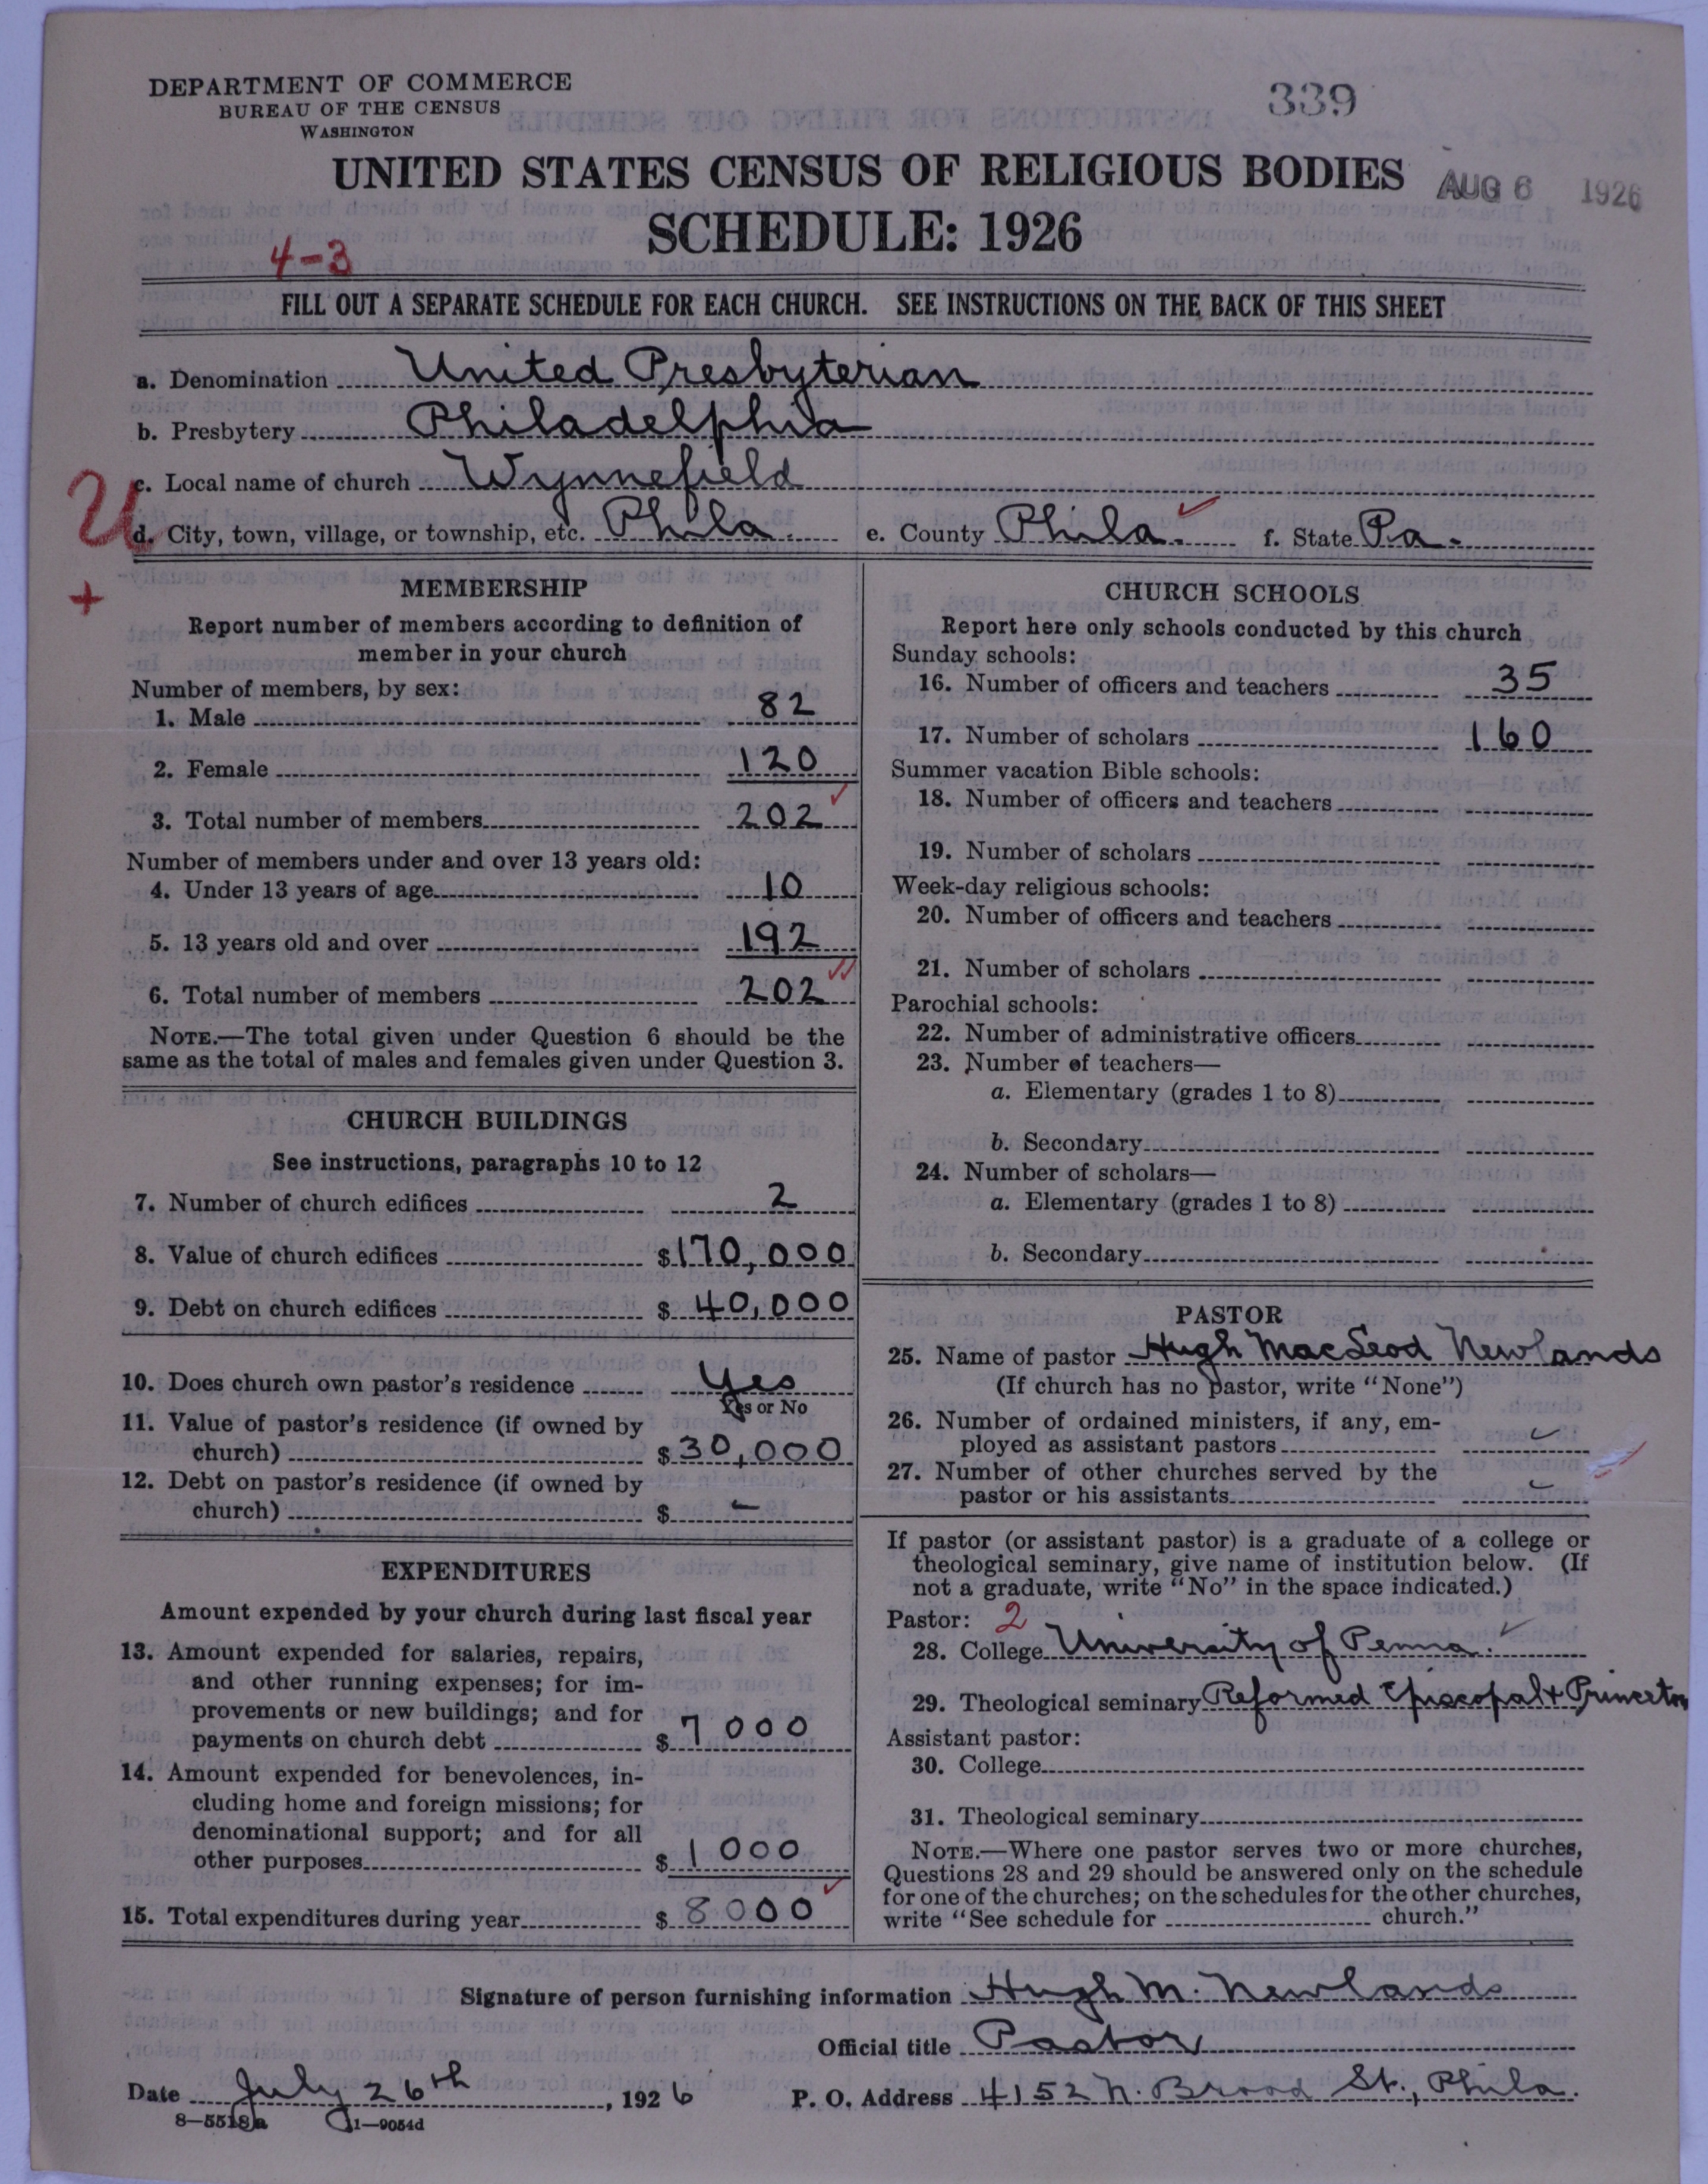 DEPARTMENT OF COMMERCE
BUREAU OF THE CENSUS
WASHINGTON
339
UNITED STATES CENSUS OF RELIGIOUS BODIES
AUG 6 1926
SCHEDULE: 1926
4-3
FILL OUT A SEPARATE SCHEDULE FOR EACH CHURCH. SEE INSTRUCTIONS ON THE BACK OF THIS SHEET
a. Denomination United Presbyterian
b. Presbytery Philadelphia
c. Local name of church Wynnefield
U
d. City, town, village, or township, etc. Phila. e. County Phila. f. State Pa.
+
MEMBERSHIP
Report number of members according to definition of
member in your church
Number of members, by sex:
1. Male 82
2. Female 120
3. Total number of members 202
Number of members under and over 13 years old:
4. Under 13 years of age 10
5. 13 years old and over 192
6. Total number of members 202
NOTE.—The total given under Question 6 should be the
same as the total of males and females given under Question 3.
CHURCH BUILDINGS
See instructions, paragraphs 10 to 12
7. Number of church edifices 2
8. Value of church edifices $170,000
9. Debt on church edifices $ 40,000
10. Does church own pastor's residence Yes
Yes or No
11. Value of pastor's residence (if owned by
church) $30,000
12. Debt on pastor's residence (if owned by
church) $ -
EXPENDITURES
Amount expended by your church during last fiscal year
13. Amount expended for salaries, repairs,
and other running expenses; for im-
provements or new buildings; and for
payments on church debt $ 7000
14. Amount expended for benevolences, in-
cluding home and foreign missions; for
denominational support; and for all
other purposes $ 1000
15. Total expenditures during year $ 8000
CHURCH SCHOOLS
Report here only schools conducted by this church
Sunday schools:
16. Number of officers and teachers 35
17. Number of scholars 160
Summer vacation Bible schools:
18. Number of officers and teachers
19. Number of scholars
Week-day religious schools:
20. Number of officers and teachers
21. Number of scholars
Parochial schools:
22. Number of administrative officers
23. Number of teachers—
a. Elementary (grades 1 to 8)
b. Secondary
24. Number of scholars—
a. Elementary (grades 1 to 8)
b. Secondary
PASTOR
25. Name of pastor Hugh MacLeod Newlands
(If church has no pastor, write "None")
26. Number of ordained ministers, if any, em-
ployed as assistant pastors
27. Number of other churches served by the
pastor or his assistants
If pastor (or assistant pastor) is a graduate of a college or
theological seminary, give name of institution below. (If
not a graduate, write "No" in the space indicated.)
Pastor: 2
28. College University of Penna.
29. Theological seminary Reformed Episcopal + Princeton
Assistant pastor:
30. College
31. Theological seminary
NOTE.—Where one pastor serves two or more churches,
Questions 28 and 29 should be answered only on the schedule
for one of the churches; on the schedules for the other churches,
write "See schedule for church."
Signature of person furnishing information Hugh M. Newlands
Official title Pastor
Date July 26th, 1926 P. O. Address 4152 N. Broad St., Phila.
8-5518a 11-9054d